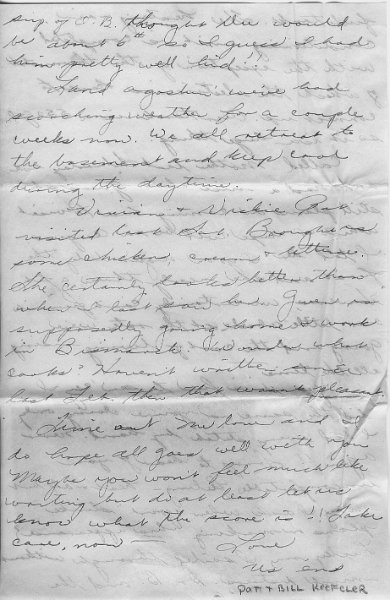 of O.B. thought Du would
be about 6# so I guess I had
him pretty well tied!!
Land agoshin we've had
scorching weather for a couple
weeks now. We all retreat to
the basement and keep cool
during the daytime.
Vivian + Vickie
visited last Sat. Brought us
some chicken, cream + lettuce.
She certainly looks better than
when I last saw her. Gwen is
supposedly going home + work
in Bismarck. Wonder what
cooks? Haven't written
last Feb. then that wasn't pleasant.
Time aut me love and I
do hope all goes well with you
Maybe you won't feel much like
writing but do at least let us
know what the score is!! Take
care, now —
Love
Us end
PAT + BILL KEEFELER